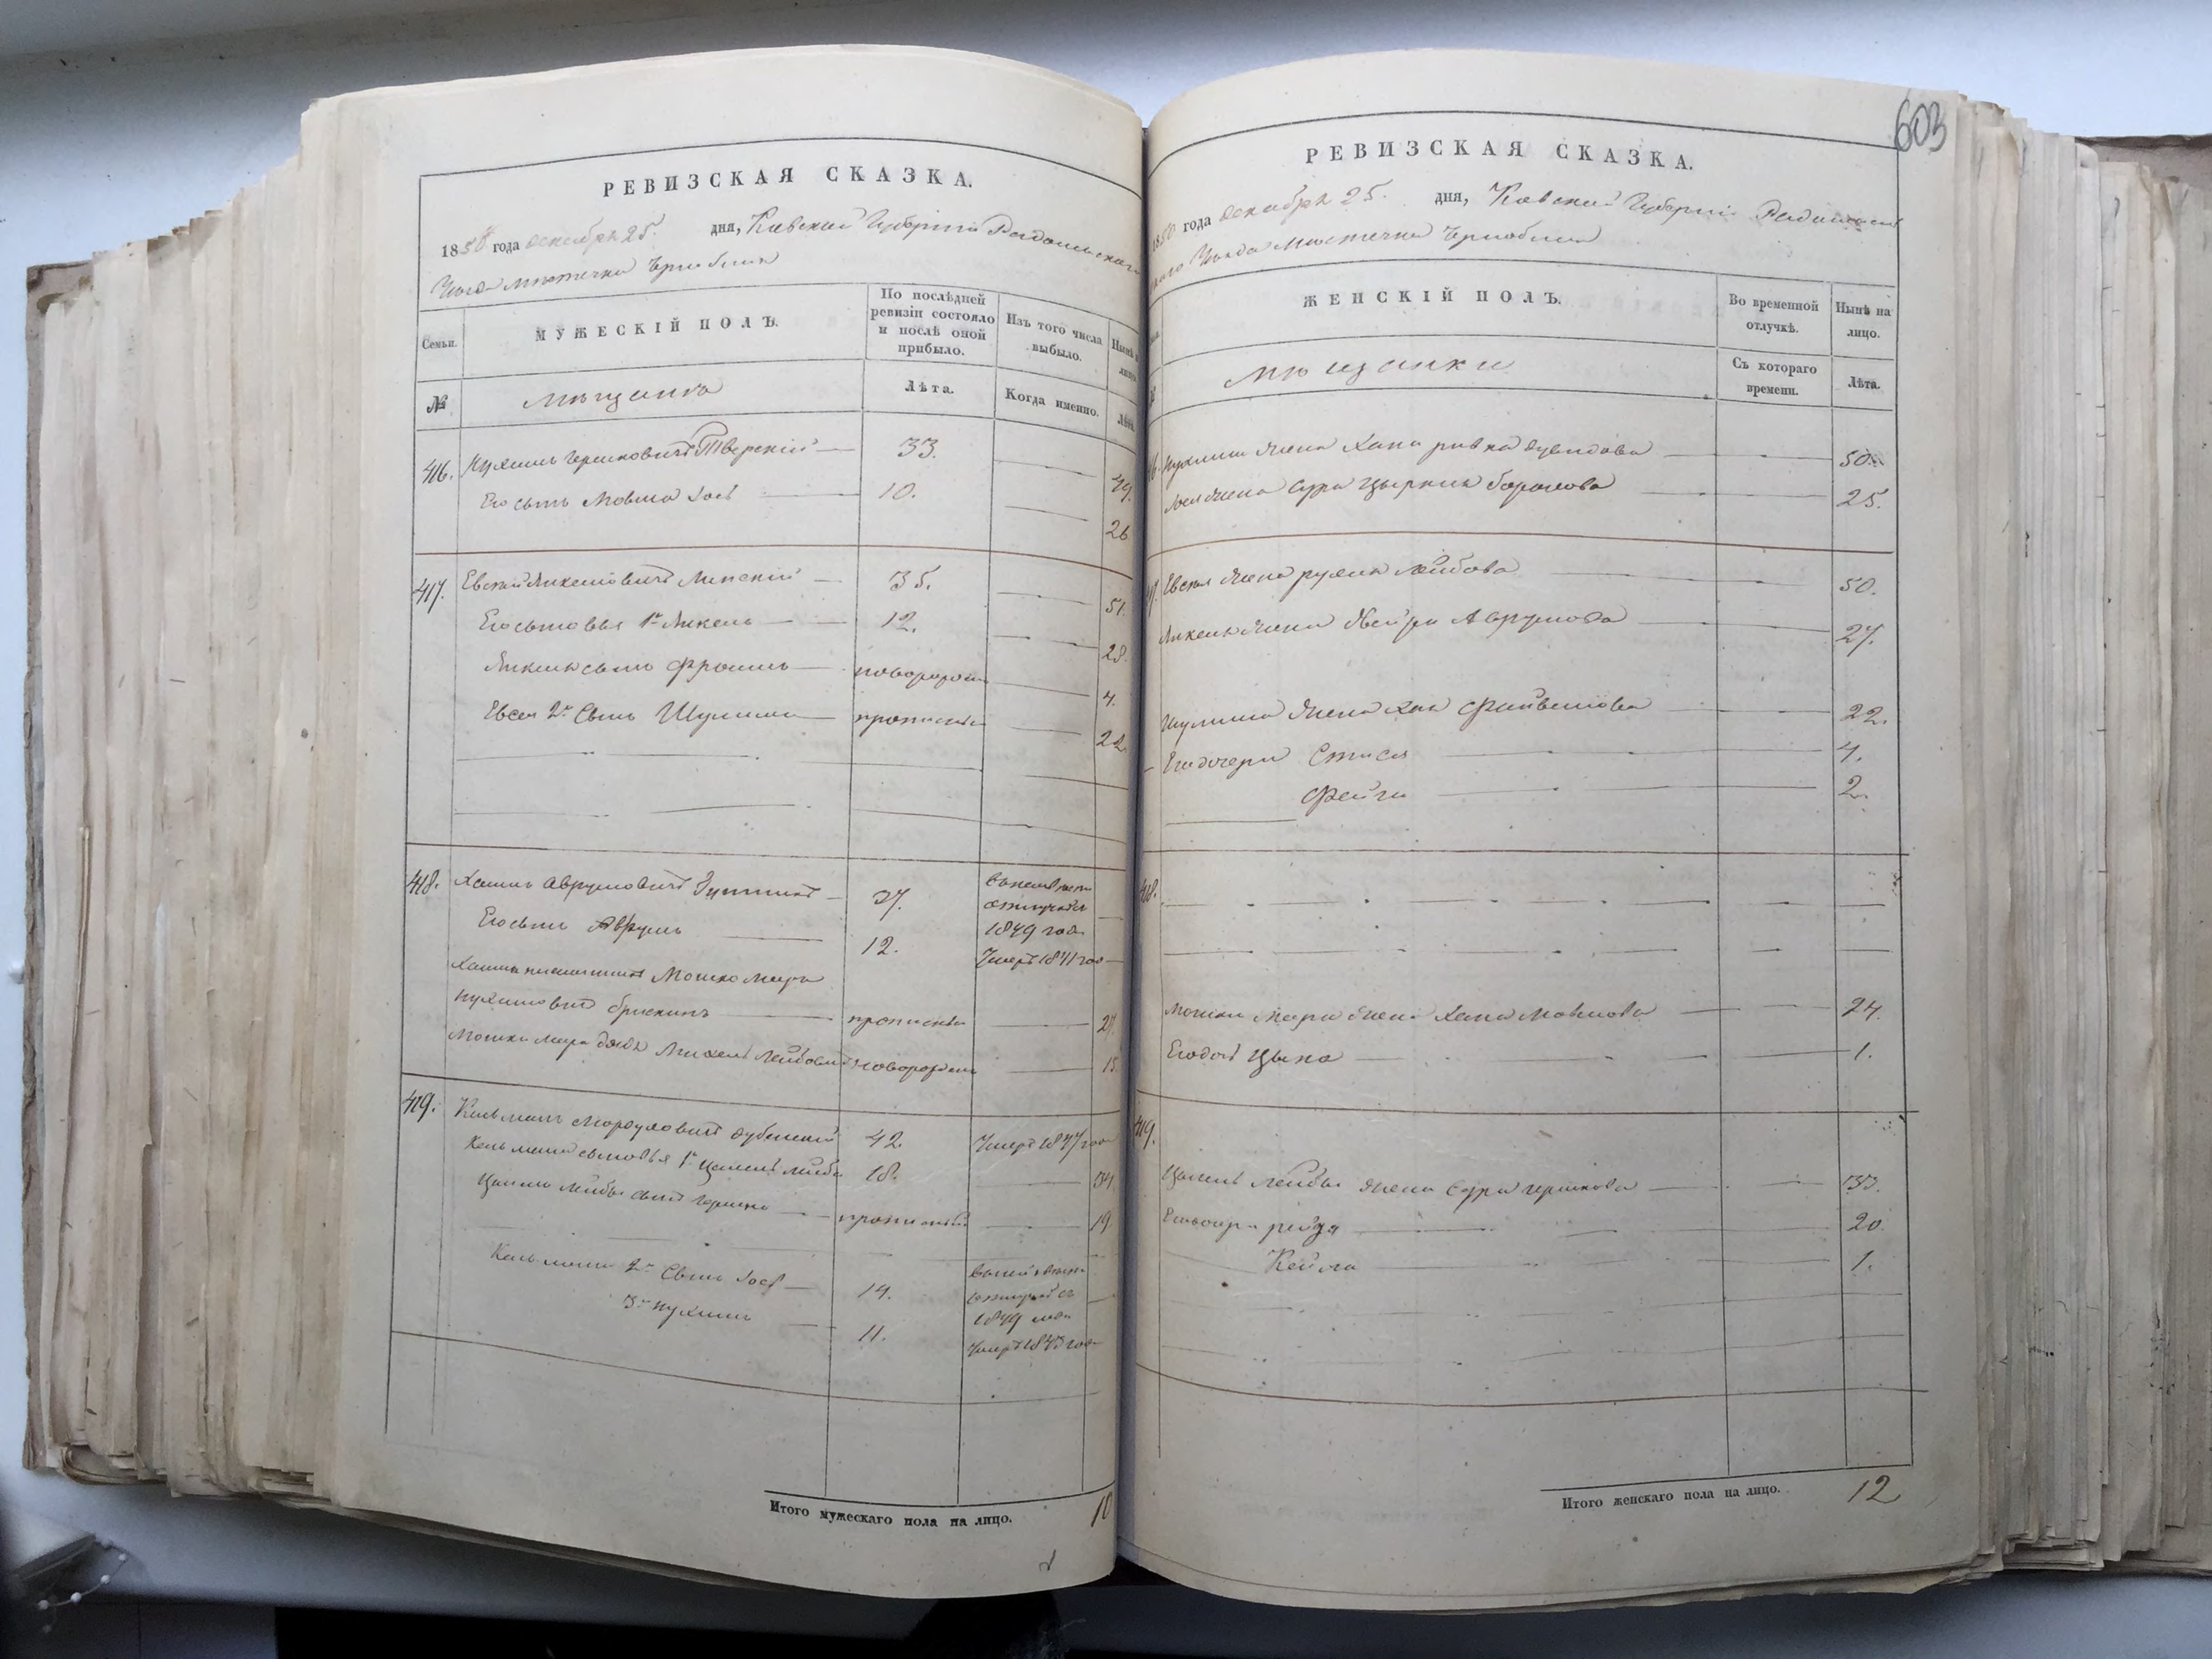 РЕВИЗСКАЯ СКАЗКА.
1850 года декабря 25. дня, Киевской Губернии Радомысльскаго
Уезда местечка Чернобыля
Семьи.
МУЖЕСКІЙ ПОЛЪ.
По послѣдней ревизіи состояло и послѣ оной прибыло.
Изъ того числа выбыло.
№
Мещане
Лѣта.
Когда именно.
Лѣта.
416. Нухим Гершкович Тверский 33. 49.
Его сын Мовша Иось 10. 26
417. Евсей Янкелиович Минский 35. 51.
Его сыновья 1й Янкель 12. 28.
Янкеля сын Фроим новорожден 4.
Евсея 2й сын Шулим прописный 22.
418. Хаим Аврумович 37. отлучки 1849 года
Его сын Аврум 12. Умер 1841 года
Хаима племянник Мошко Меер
Нухимович прописный 27.
Мошка Меера дядя Лейбович новорожден 15.
419. Кельман Мордухович Дубенский 42. Умер 1847 года
Кельмана сыновья 1й Цалель Лейба 18. 34.
Цалель Лейбы сын Гершко прописный 19.
Кельмана 2й сын Иось 14. отлучке с 1849 года
3й Нухим 11. Умер 1843 года
Итого мужескаго пола на лицо. 10
603
РЕВИЗСКАЯ СКАЗКА.
1850 года декабря 25. дня, Киевской Губернии Радомысль
скаго Уезда местечка Чернобыля
ЖЕНСКІЙ ПОЛЪ.
Во временной отлучкѣ.
Нынѣ на лицо.
Мещанки
Съ котораго времени.
Лѣта.
Нухима жена Хана Ривка Дувидова 50.
Иося жена Сура Цырля 25.
Евсея жена Рухля Лейбова 50.
Янкеля жена Аврумова 27.
Шулима жена Хая Файвелиова 22.
Его дочери Стися 4.
Фейга 2.
418.
Мошка Меера жена Хана Мовшова 24.
Его дочь Цына 1.
419.
Цалель Лейбы жена Сура Гершкова 33.
Его дочери Рейзя 20.
Кейла 1.
Итого женскаго пола на лицо. 12